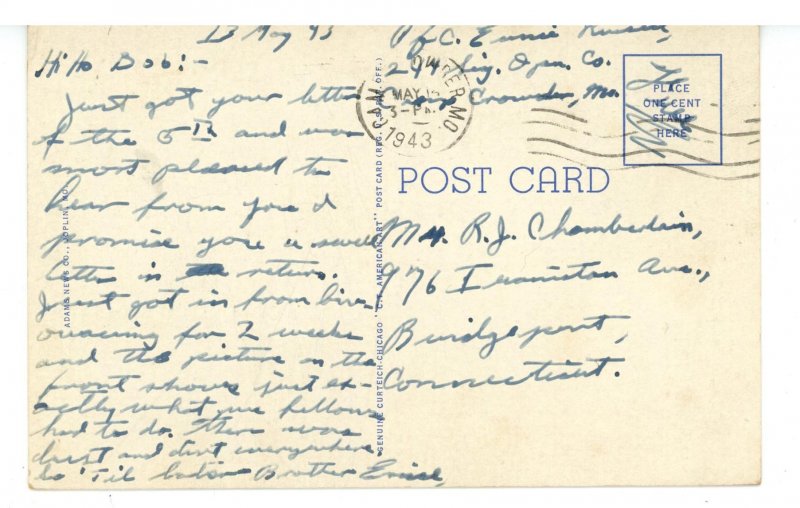 13 May 43
Hi Ho Bob:-
Just got your letter
of the 5th and was
most pleased to
hear from you &
promise you a swell
letter in the return.
Just got in from biv-
ouacing for 2 weeks
and the picture on the
front shows just ex-
actly what we fellows
had to do. There was
dust and dirt everywhere
so 'Til later Brother Ernie,
Pfc. Ernie
Sig. Opn. Co.
Camp Crowder, Mo.
CAMP CROWDER, MO.
MAY
3-PM
1943
Free
PLACE
ONE CENT
STAMP
HERE
POST CARD
Mr. R.J. Chamberlain,
976 Iranistan Ave.,
Bridgeport,
Connecticut.
ADAMS NEWS CO., JOPLIN, MO.
GENUINE CURTEICH-CHICAGO "C.T. AMERICAN ART" POST CARD (REG. U.S. PAT. OFF.)